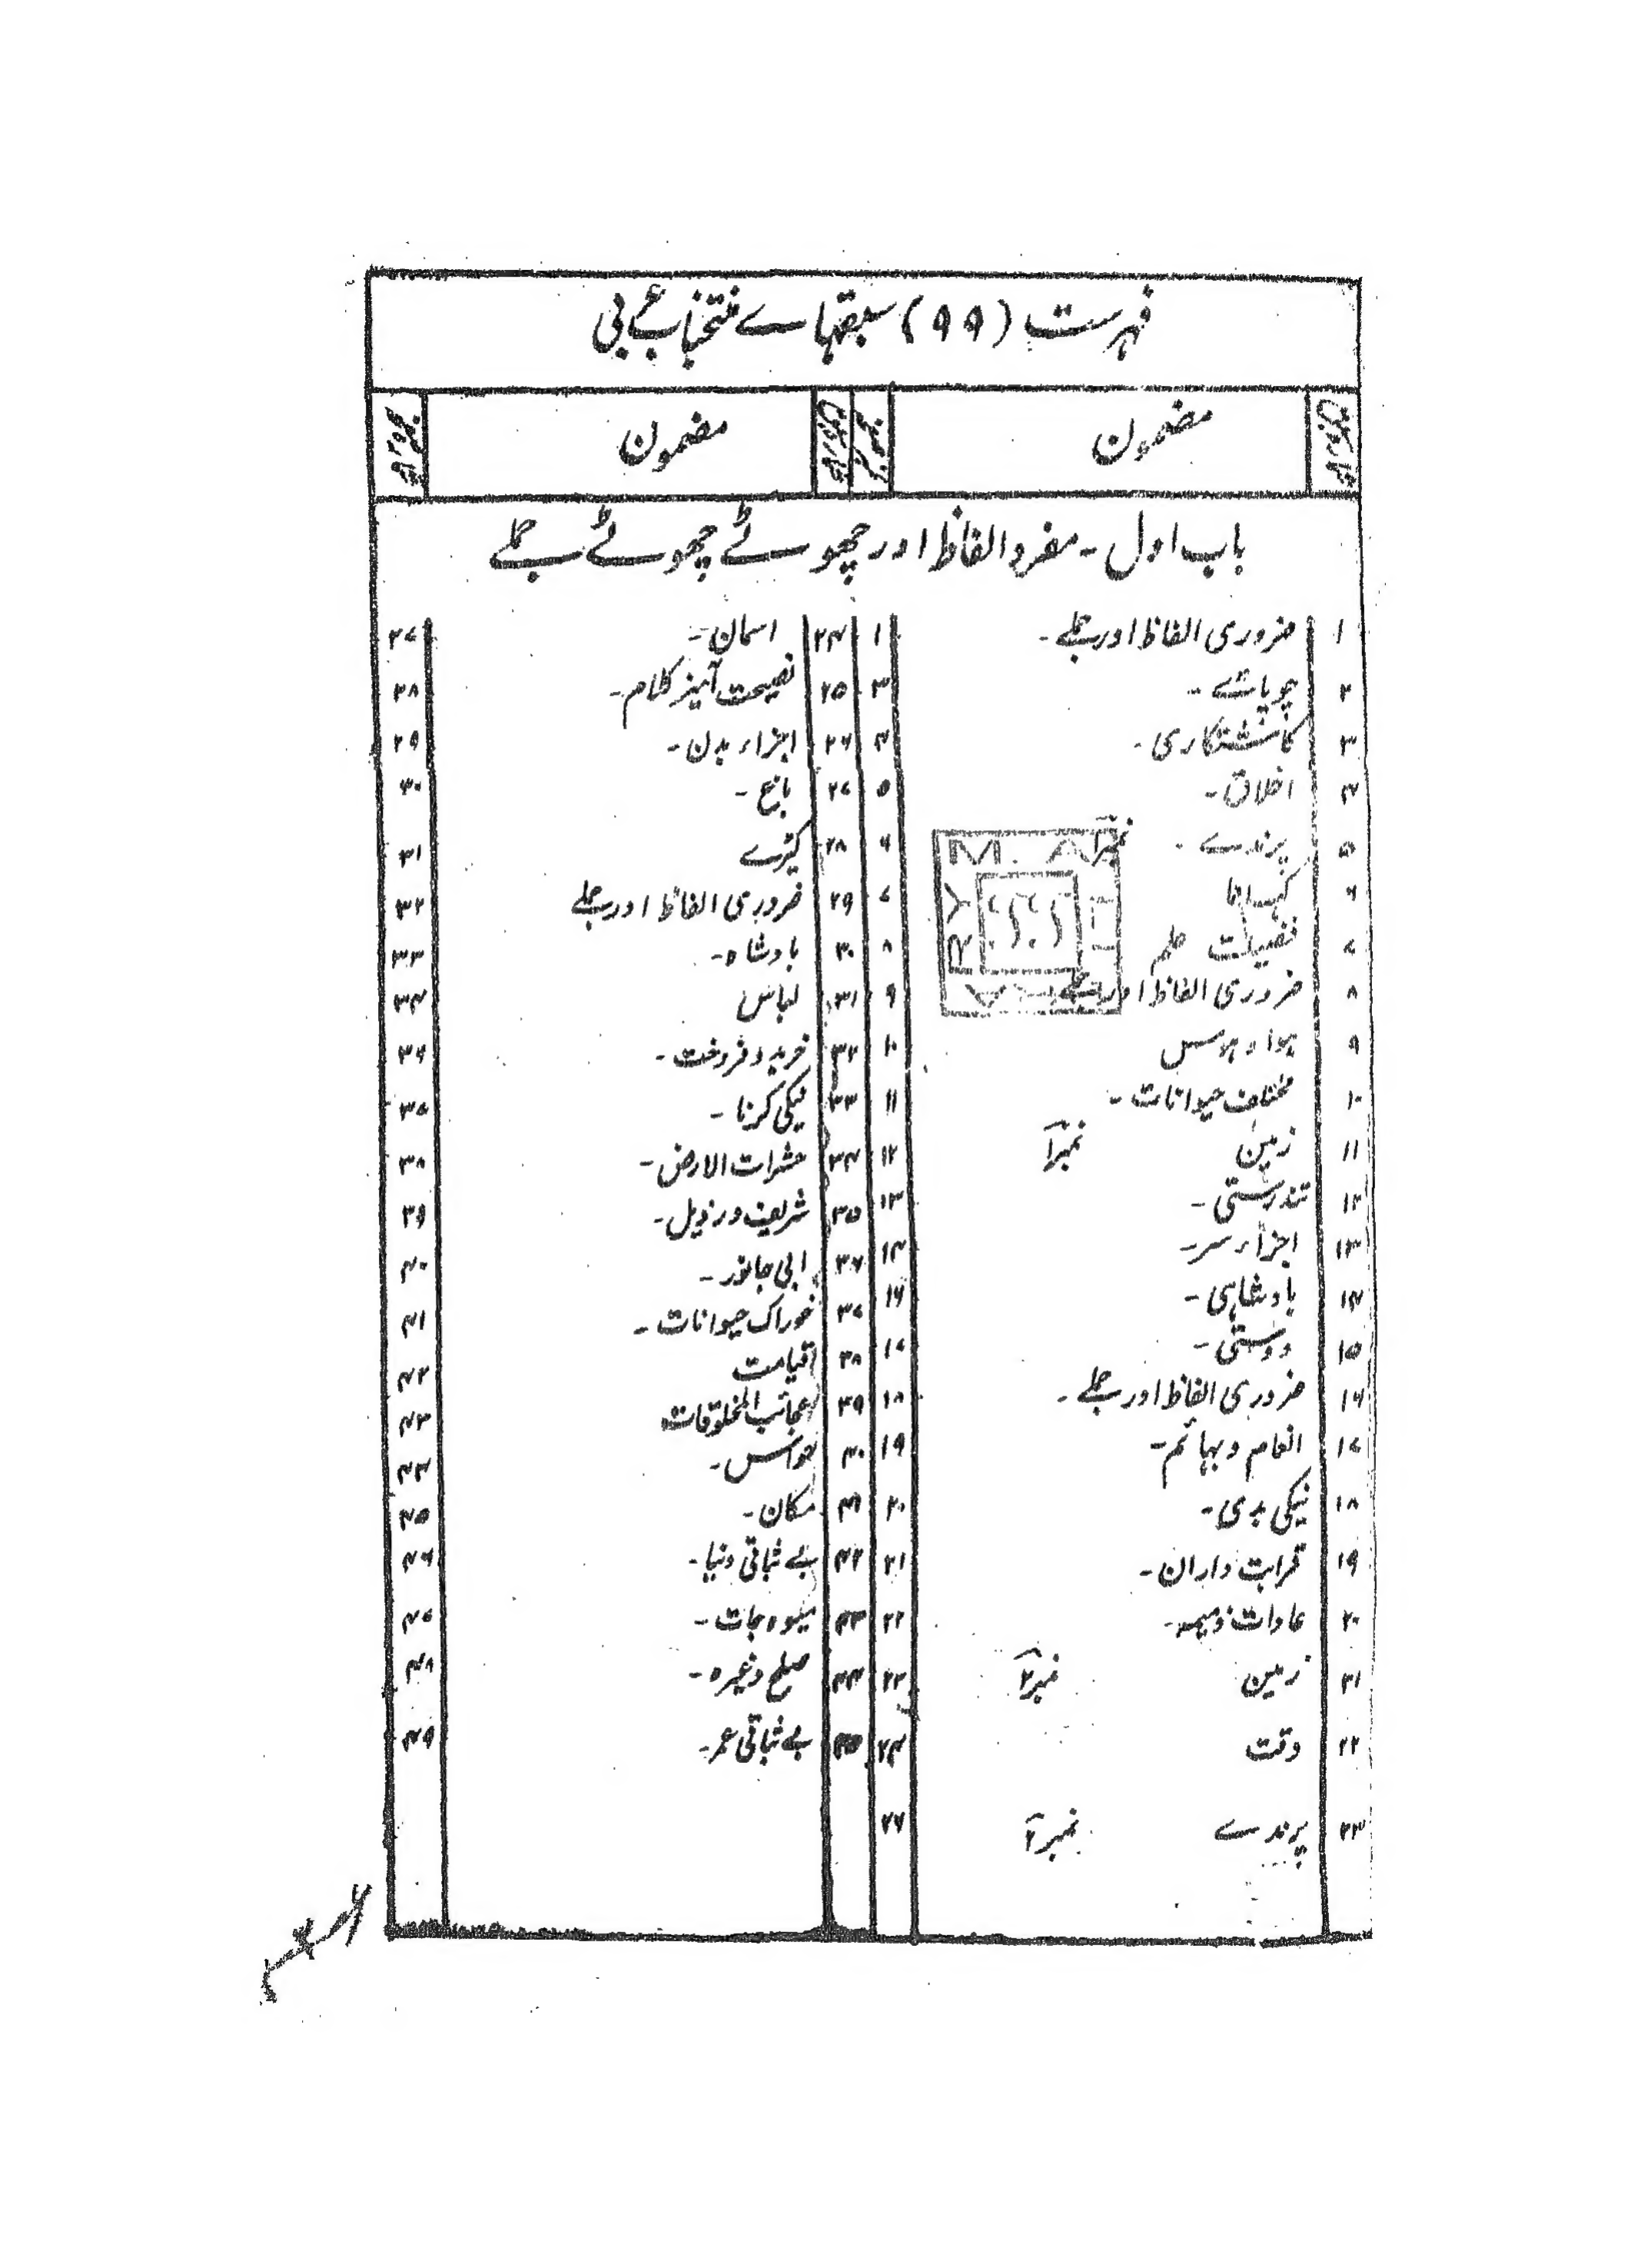 فہرست (۹۹) سبقہائے منتخباب عربی
مضمون
مضمون
باب اول - مفرد الفاظ اور چھوٹے چھوٹے جملے
۱ ضروری الفاظ اور جملے - ۱
۲ چوپائے - ۳
۳ کاشتکاری - ۴
۴ اخلاق - ۵
۵ پرندے - نمبر ۶
۶ کہانا ۷
۷ فضیلت علم ۸
۸ ضروری الفاظ اور جملے ۹
۹ ہوا و ہوس ۱۰
۱۰ مختلف حیوانات - ۱۱
۱۱ زمین نمبر۱ ۱۲
۱۲ تندرستی - ۱۳
۱۳ اجزاء سر - ۱۴
۱۴ بادشاہی - ۱۶
۱۵ دوستی - ۱۷
۱۶ ضروری الفاظ اور جملے - ۱۸
۱۷ انعام و بہائم - ۱۹
۱۸ نیکی بدی - ۲۰
۱۹ قرابت داران - ۲۱
۲۰ عادات ذمیمہ - ۲۲
۲۱ زمین نمبر۲ ۲۳
۲۲ وقت ۲۴
۲۳ پرندے نمبر۲ ۲۶
۲۴ اسمان - ۲۷
۲۵ نصیحت آمیز کلام - ۲۸
۲۶ اجزاء بدن - ۲۹
۲۷ باغ - ۳۰
۲۸ کپڑے ۳۱
۲۹ ضروری الفاظ اور جملے ۳۲
۳۰ بادشاہ - ۳۳
۳۱ لباس ۳۴
۳۲ خرید و فروخت - ۳۶
۳۳ نیکی کرنا - ۳۷
۳۴ حشرات الارض - ۳۸
۳۵ شریف و رذیل - ۳۹
۳۶ ابی جانور - ۴۰
۳۷ خوراک حیوانات - ۴۱
۳۸ قیامت ۴۲
۳۹ عجائب المخلوقات ۴۳
۴۰ حواس - ۴۴
۴۱ مکان - ۴۵
۴۲ بے ثباتی دنیا - ۴۶
۴۳ میوہ جات - ۴۷
۴۴ صلح وغیرہ - ۴۸
۴۵ بے ثباتی عمر - ۴۹